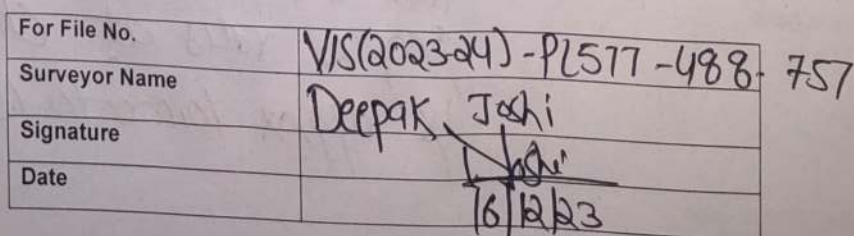 For File No. VIS(2023-24) - PL577 - 488 - 757
Surveyor Name Deepak Joshi
Signature Joshi
Date 16/12/23